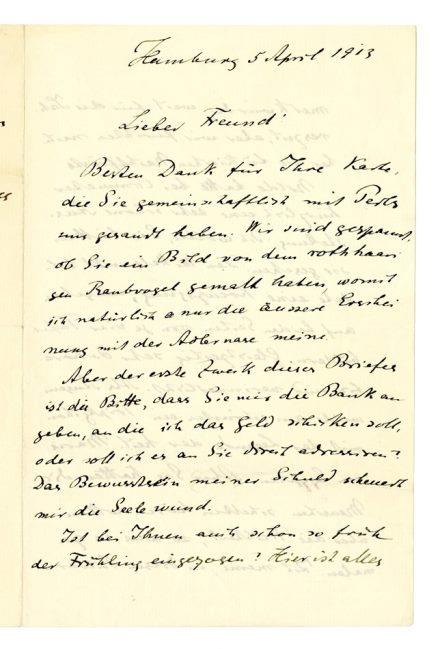 Hamburg 5 April 1913
Lieber Freund!
Besten Dank für Ihre Karte,
die Sie gemeinschaftlich mit Perls
mir gesandt haben. Wir sind gespannt,
ob Sie ein Bild von dem rothhaari
gen Raubvogel gemalt haben, womit
ich natürlich nur die äussere Erschei
nung mit der Adlernase meine.
Aber der erste Zweck dieses Briefes
ist die Bitte, dass Sie mir die Bank an
geben, an die ich das Geld schicken soll,
oder soll ich es an Sie direct adressiren?
Das Bewusstsein meiner Schuld scheuert
mir die Seele wund.
Ist bei Ihnen auch schon so früh
der Frühling eingezogen? Hier ist alles